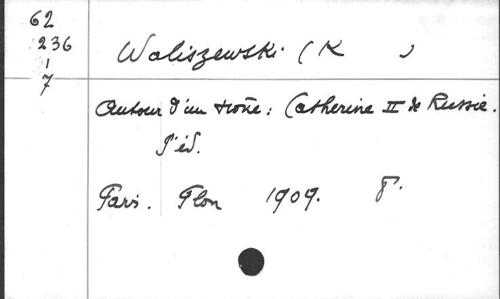 62
236
1
7
Waliszewski (K )
Autour d'un trône: Catherine II de Russie.
éd.
Paris. Plon 1909.